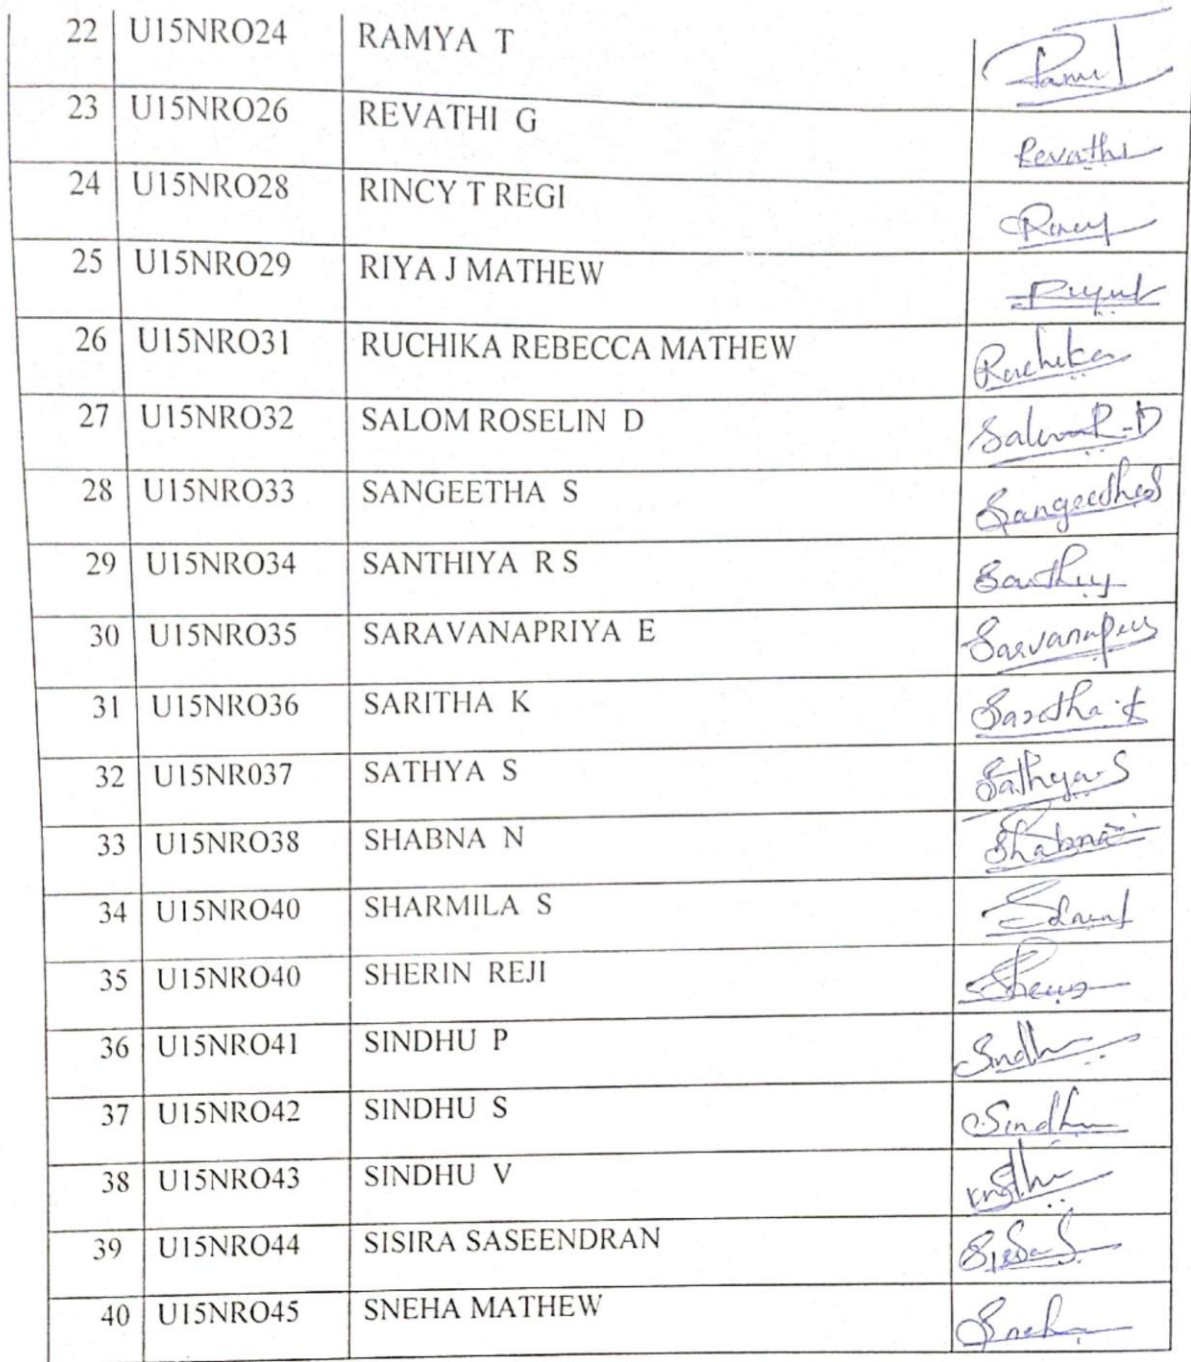 22 U15NRO24 RAMYA T
23 U15NRO26 REVATHI G Revathi
24 U15NRO28 RINCY T REGI Rincy
25 U15NRO29 RIYA J MATHEW
26 U15NRO31 RUCHIKA REBECCA MATHEW Ruchika
27 U15NRO32 SALOM ROSELIN D Salom R-D
28 U15NRO33 SANGEETHA S Sangeetha S
29 U15NRO34 SANTHIYA R S
30 U15NRO35 SARAVANAPRIYA E
31 U15NRO36 SARITHA K Saritha.k
32 U15NR037 SATHYA S Sathya S
33 U15NRO38 SHABNA N Shabna
34 U15NRO40 SHARMILA S
35 U15NRO40 SHERIN REJI
36 U15NRO41 SINDHU P Sindhu
37 U15NRO42 SINDHU S Sindhu
38 U15NRO43 SINDHU V
39 U15NRO44 SISIRA SASEENDRAN
40 U15NRO45 SNEHA MATHEW Sneha